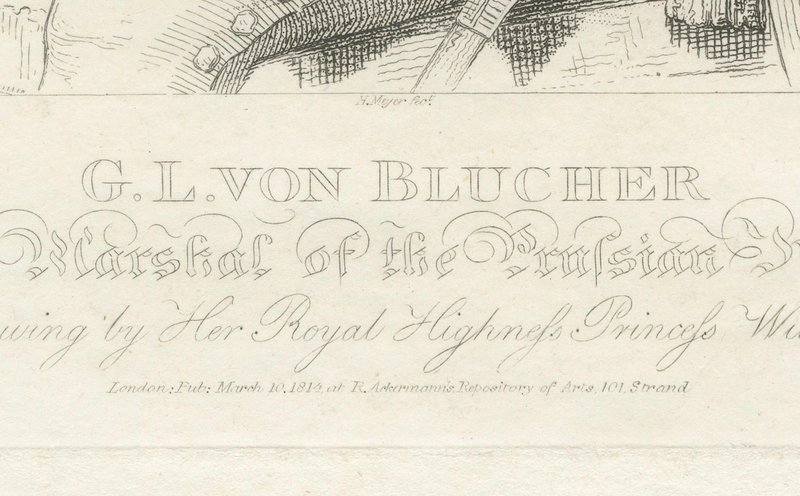 H. Meyer sct.
G. L. VON BLUCHER
Marshal of the Pruſsian
by Her Royal Highneſs Princeſs
London; Pub; March 10. 1814, at R. Ackermann's Repository of Arts, 101, Strand